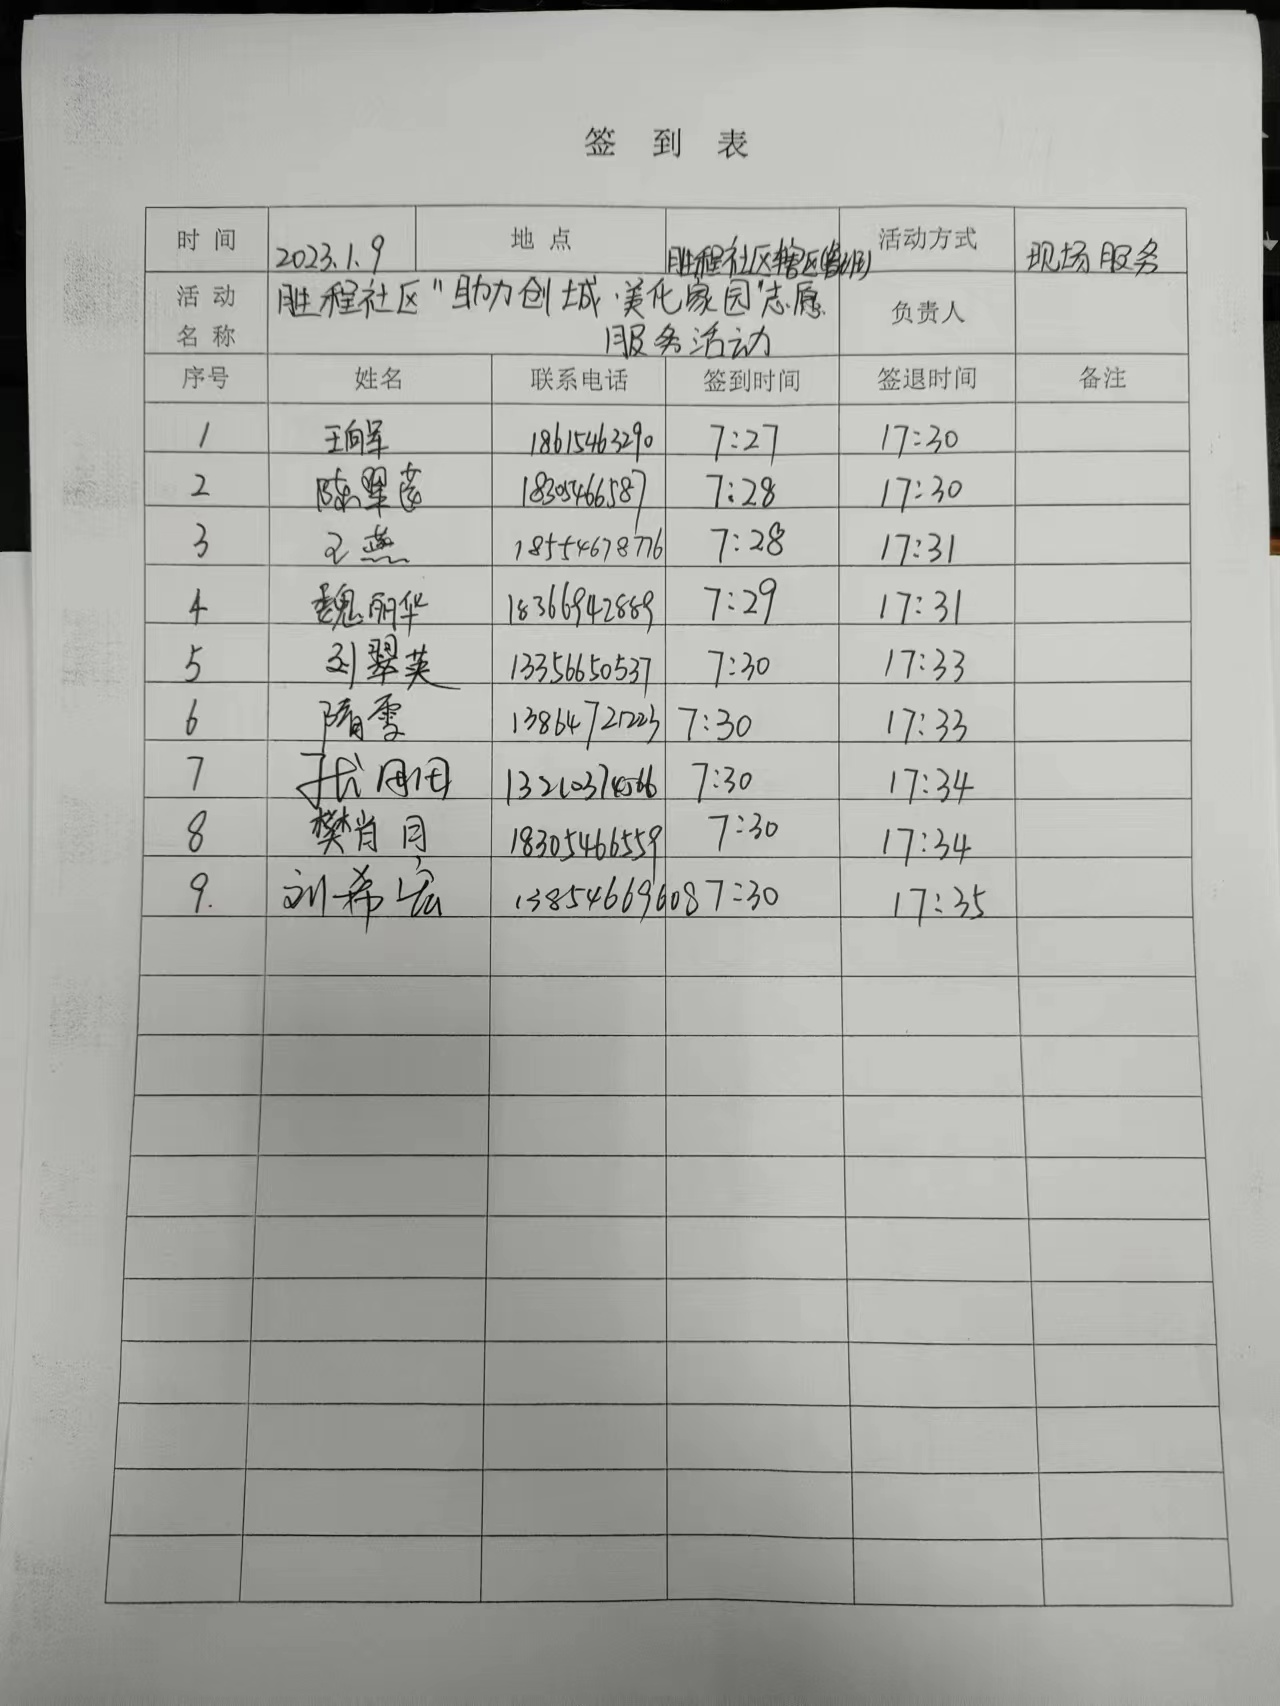 签 到 表
时 间 2023.1.9 地 点 胜程社区辖区 活动方式 现场服务
活 动 名 称 胜程社区“助力创城·美化家园”志愿 负责人
服务活动
序号 姓名 联系电话 签到时间 签退时间 备注
1 王向军 18615463290 7:27 17:30
2 陈翠莲 18305466587 7:28 17:30
3 王燕 18554678776 7:28 17:31
4 魏丽华 18366942889 7:29 17:31
5 刘翠英 13356650537 7:30 17:33
6 隋雪 13864721223 7:30 17:33
7 7:30 17:34
8 樊肖月 18305466559 7:30 17:34
9. 刘希宏 13854669608 7:30 17:35